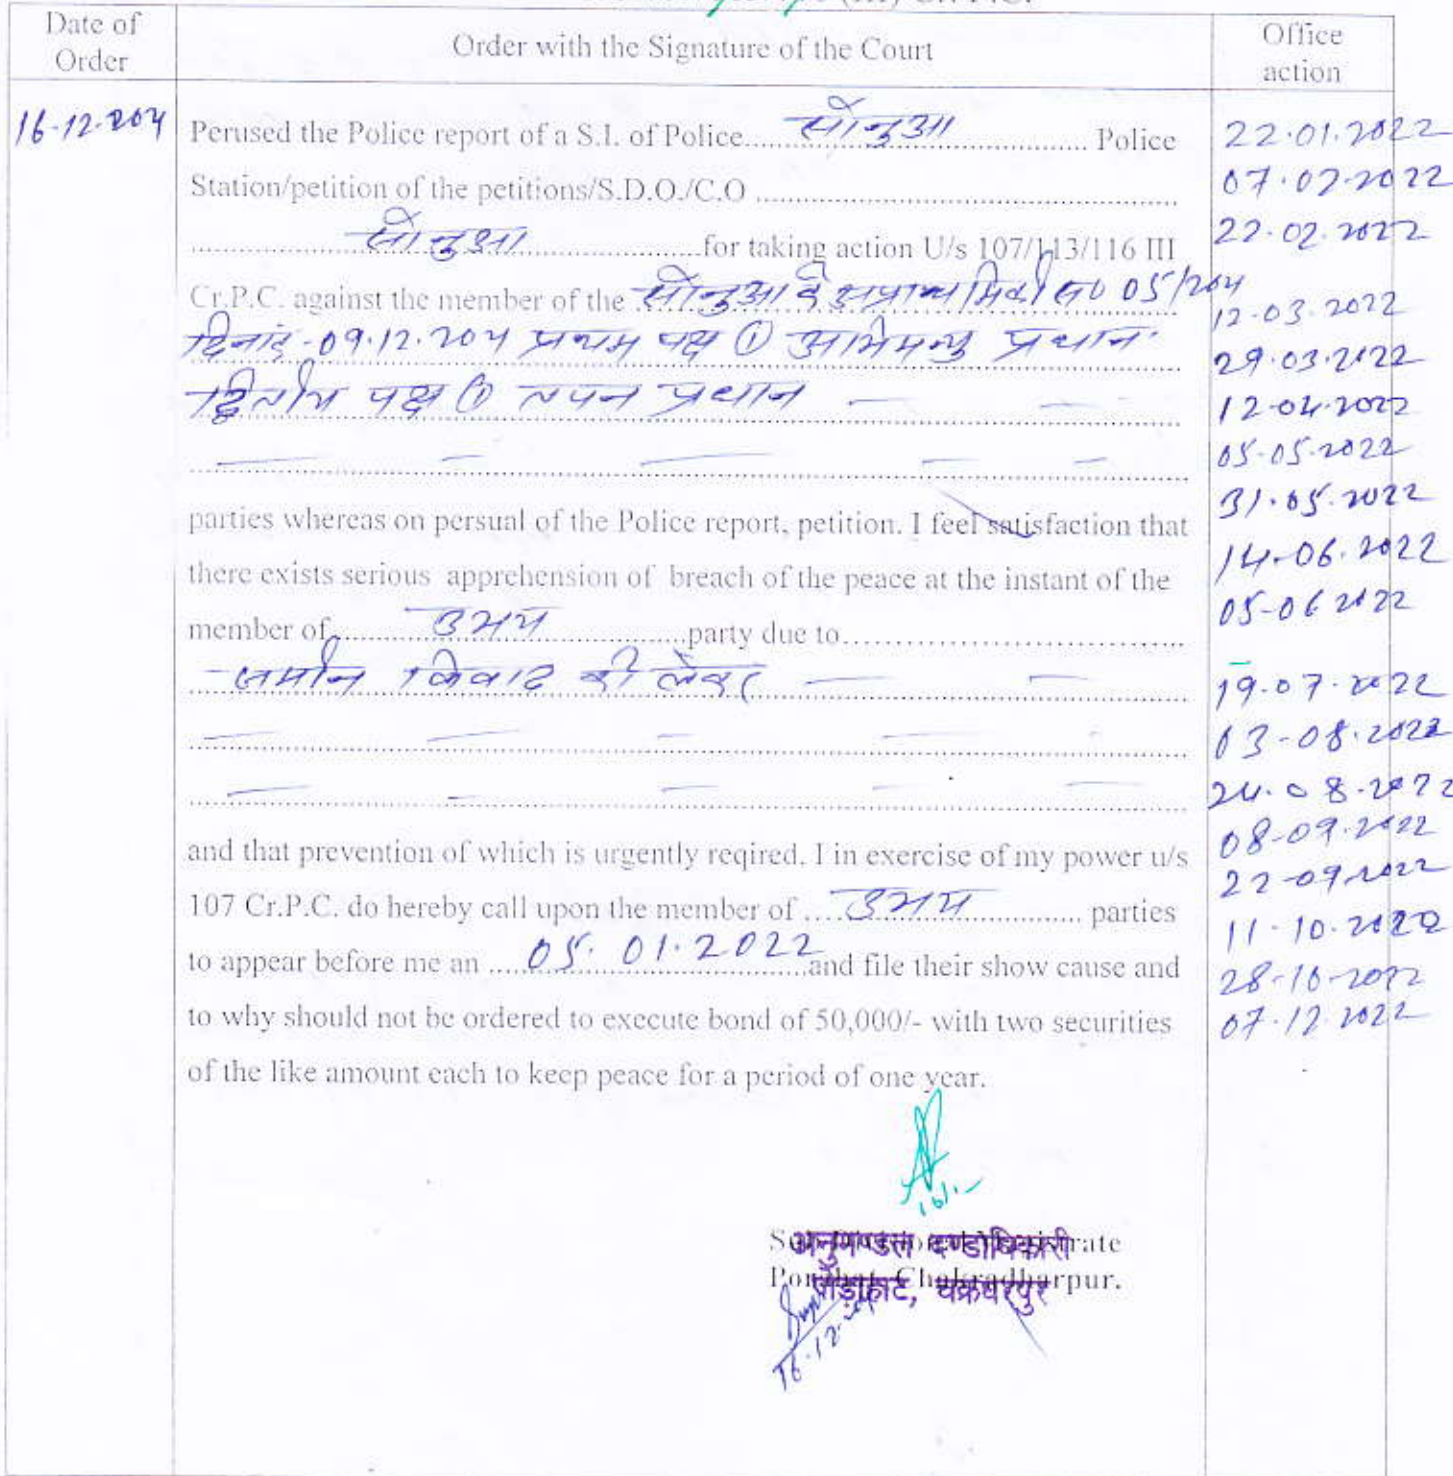 (III) Cr. P.C.
Date of Order
Order with the Signature of the Court
Office action
16-12-2021
Perused the Police report of a S.I. of Police.... सोनुआ .... Police
Station/petition of the petitions/S.D.O./C.O ....
.... सोनुआ ....for taking action U/s 107/113/116 III
Cr.P.C. against the member of the सोनुआ के अप्राथमिकी सं० 05/2021
दिनांक-09.12.2021 प्रथम पक्ष ① अभिमन्यु प्रधान
द्वितीय पक्ष ① तपन प्रधान — —
— — — — —
parties whereas on persual of the Police report, petition. I feel satisfaction that
there exists serious apprehension of breach of the peace at the instant of the
member of.... उभय ....party due to....
जमीन विवाद को लेकर — —
— — — — —
— — — — —
and that prevention of which is urgently reqired. I in exercise of my power u/s
107 Cr.P.C. do hereby call upon the member of .... उभय .... parties
to appear before me an .... 05.01.2022 ....and file their show cause and
to why should not be ordered to execute bond of 50,000/- with two securities
of the like amount each to keep peace for a period of one year.
Sub Divisional Magistrate
Porahat, Chakradharpur.
अनुमण्डल दण्डाधिकारी
पोड़ाहाट, चक्रधरपुर
16.12.21
22.01.2022
07.02.2022
22.02.2022
12.03.2022
29.03.2022
12.04.2022
05.05.2022
31.05.2022
14.06.2022
05-06 2022
19.07.2022
03-08.2022
24.08.2022
08-09.2022
22-09.2022
11.10.2022
28-10-2022
07.12.2022